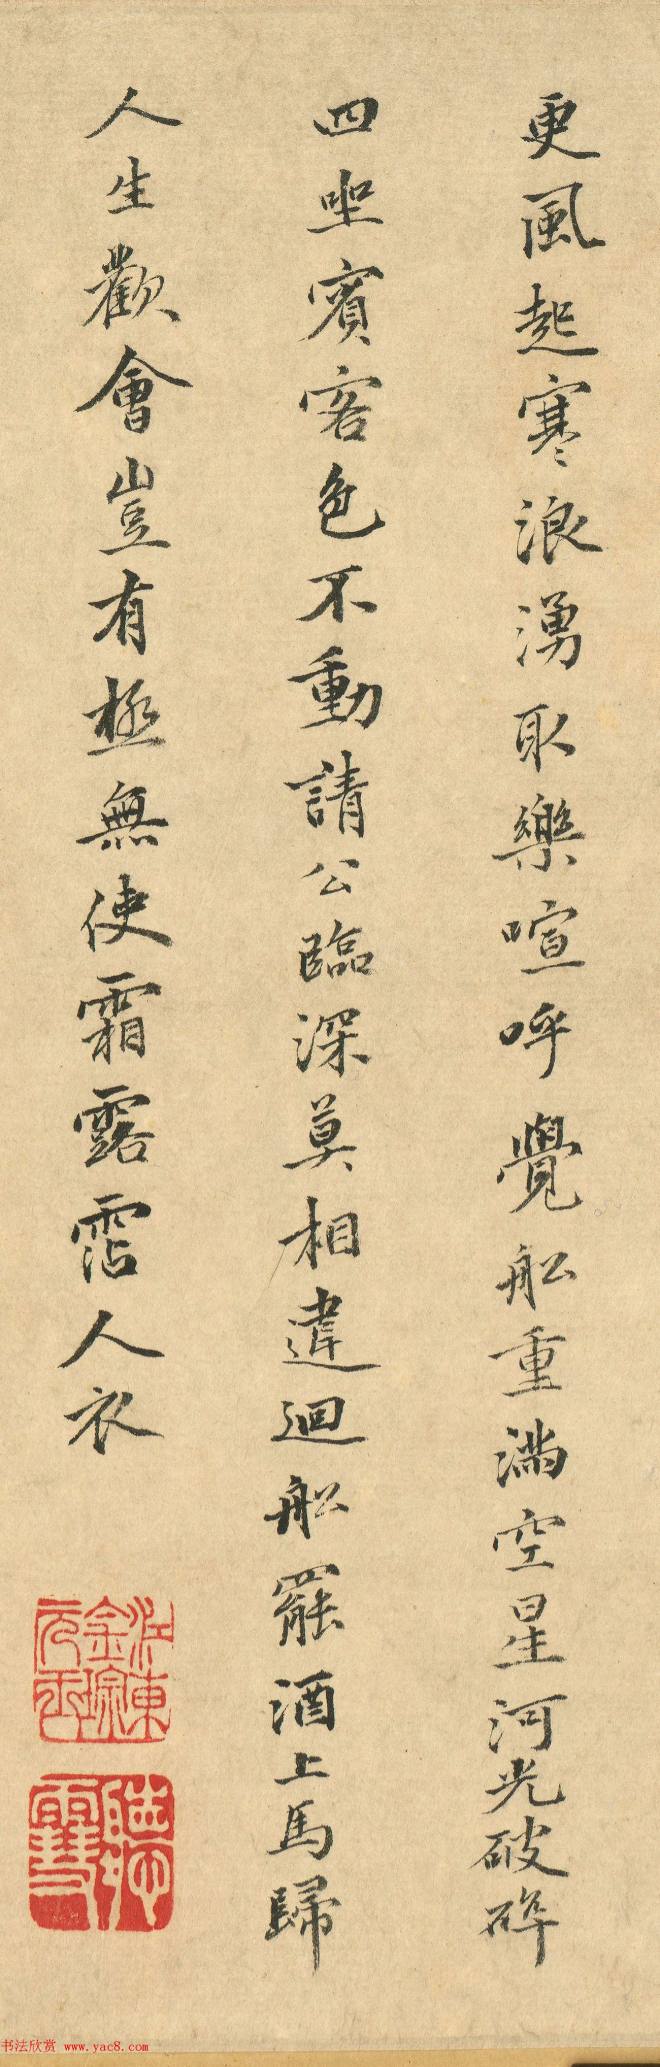 更風起寒浪湧取樂喧呼覺船重滿空星河光破碎
四坐賓客色不動請公臨深莫相違迴船罷酒上馬歸
人生歡會豈有極無使霜露霑人衣
书法欣赏 www.yac8.com